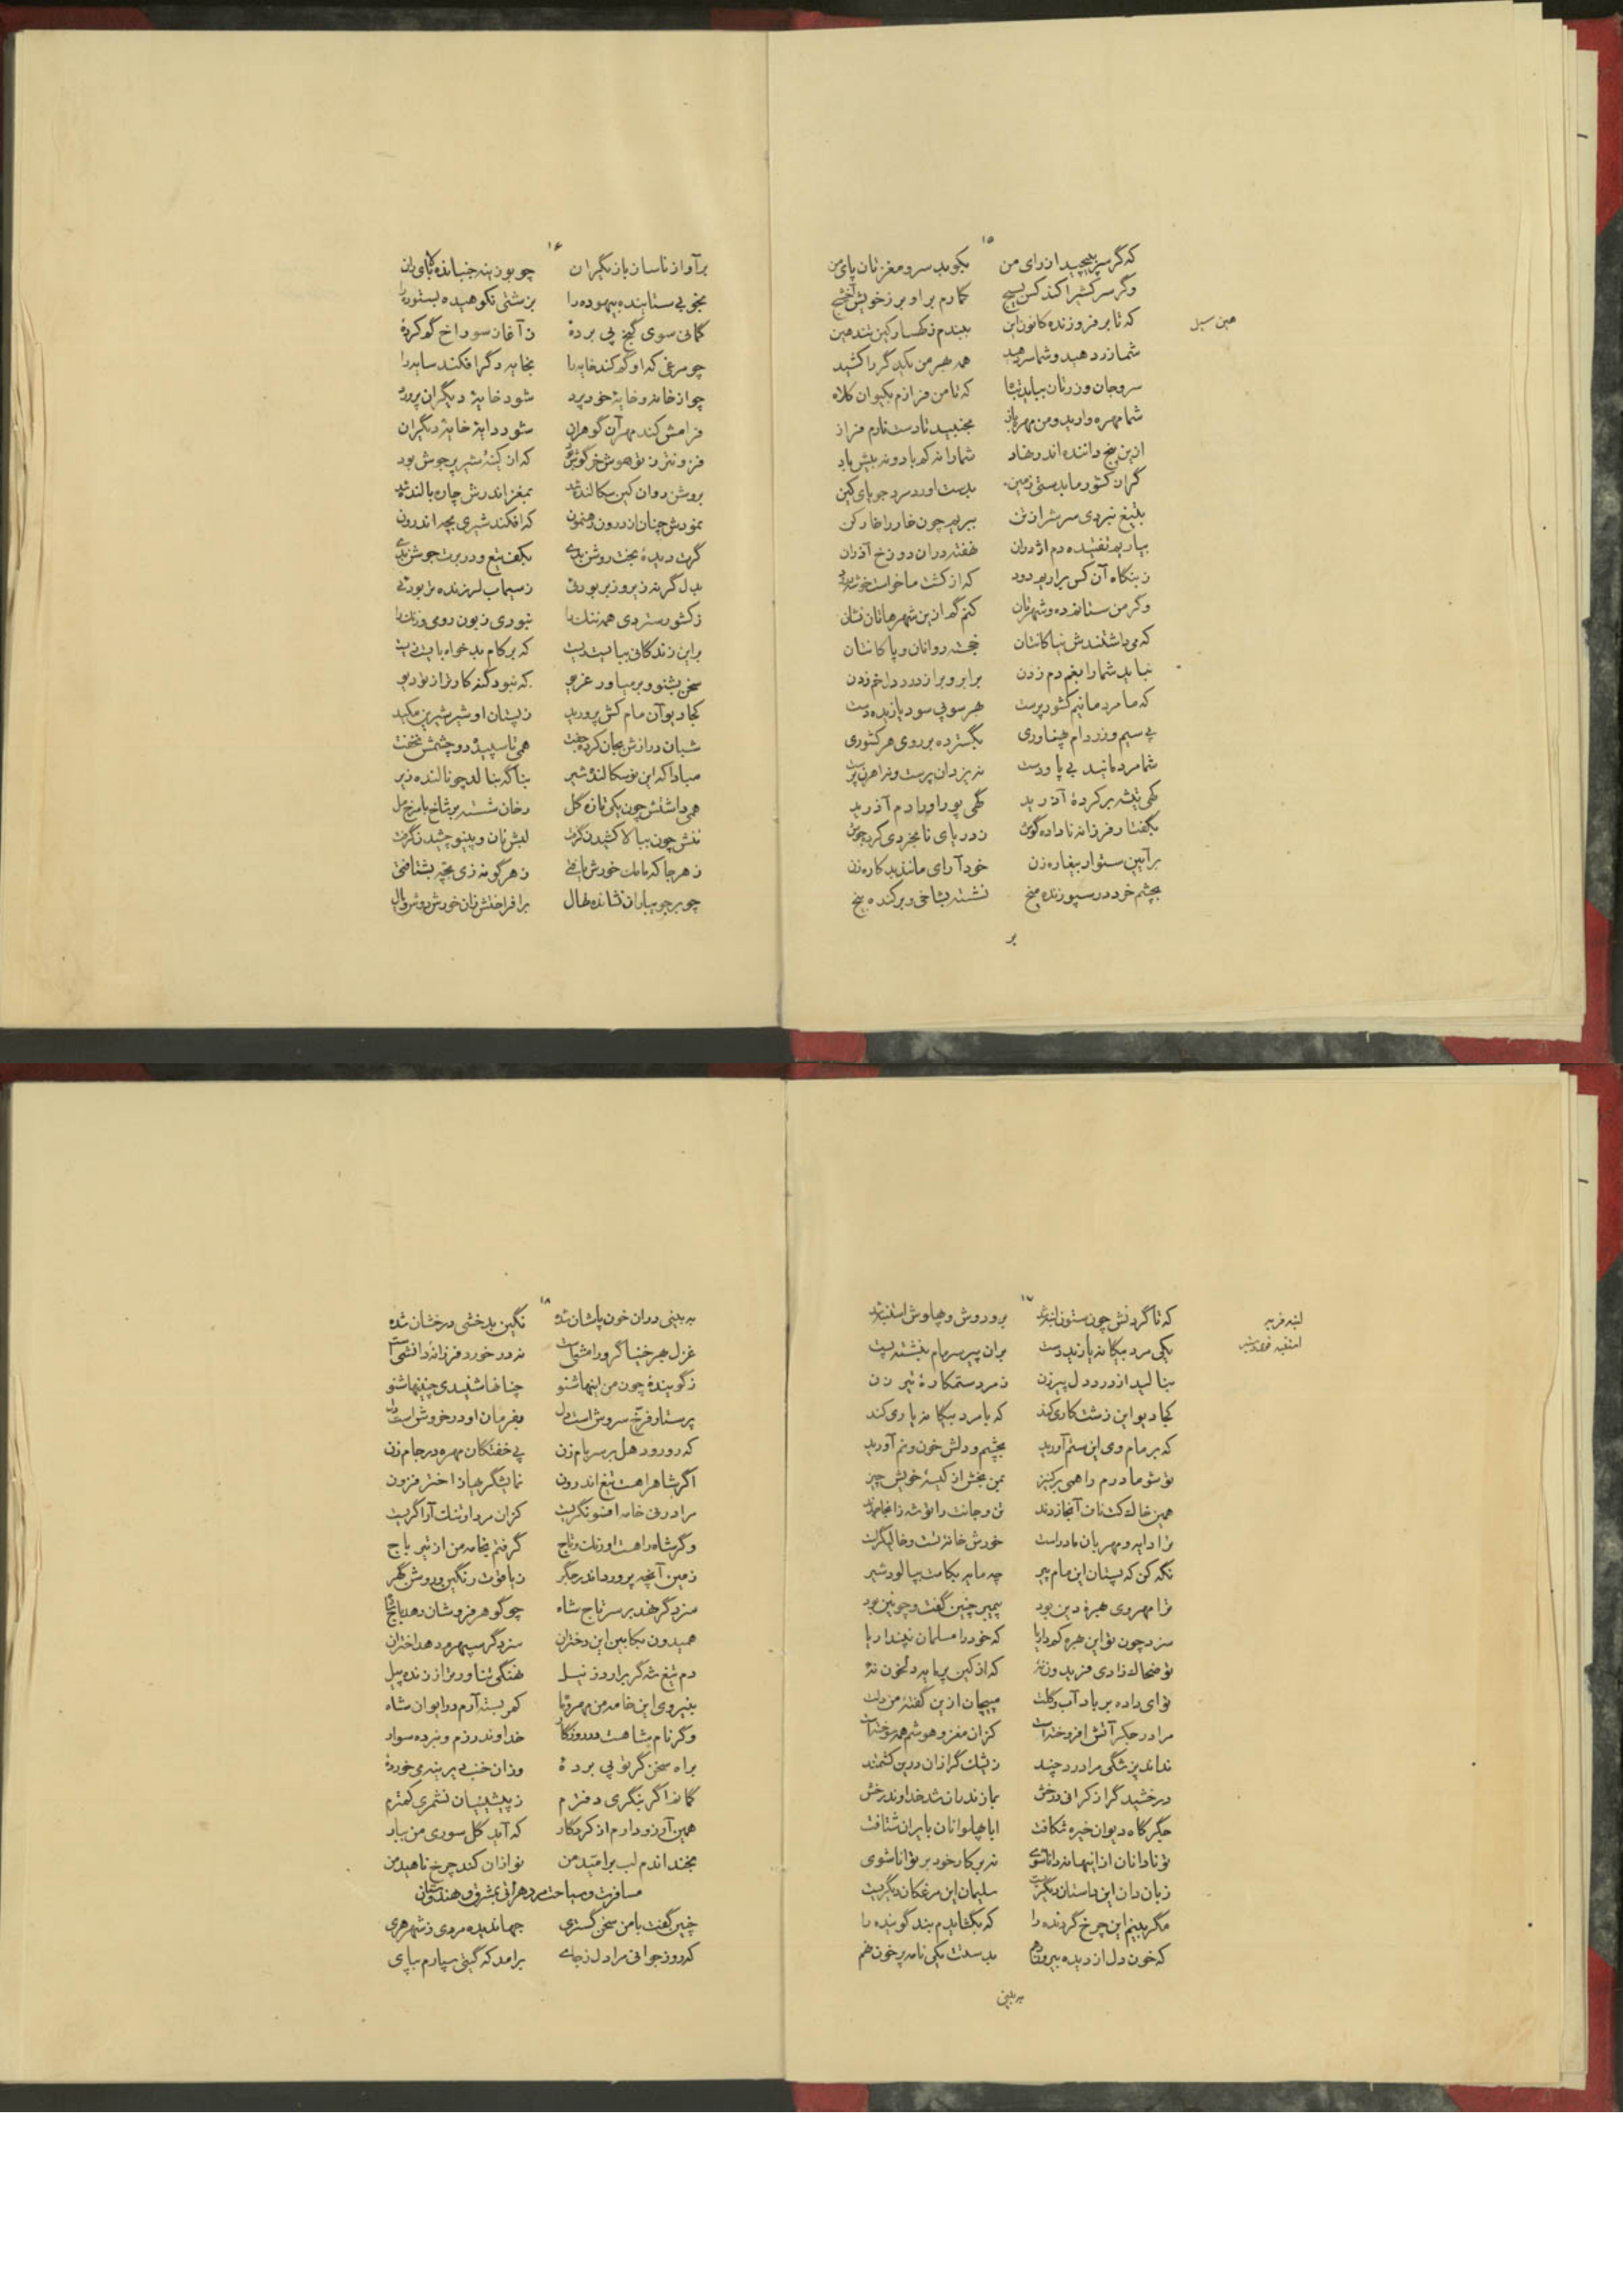 ۱۵
که گر سر بپیچید از رای من بکوبد سر و مغزتان پای من
وگر سرکشی را کند کس بسیچ
که تا بر فروزنده کانون این ببندم ز کهسار کین تند هین
هین سیل
شما زر دهید و شما سر دهید همه بهر من یکدگر را کشید
سر و جان و زرتان بباید تباه که تا من فرازم بکیوان کلاه
شما مهره وارید و من مهره باز مجنبید تا دست نارم فراز
ازین پنج داننده اندر نهاد شما را نه کم باد و نه بیش باد
گر آن کشور ما بدستی زمین بدست آورد مرد جویای کین
بتیغ نبردی سرش را ز تن ببرید چون خار را خارکن
بیارید تفتیده دم اژدران نهفته در آن دوزخ آذران
ز بنگاه آن کس برآرید دود که از کشت ما خواست خوشه درود
وگر من ستانم ده و شهرتان کنم گم ازین شهرها نان نشان
که می داشتندش نیاکانتان خجسته روانان و پاکانتان
نباید شما را بغم دم زدن برابر و بر از درد دل خم زدن
که ما مردمانیم کشور پرست بهر سوی سود یازیده دست
پی سیم و زر دام پهناوری بگسترده بر روی هر کشوری
شما مردمانید بی پا و دست نه یزدان پرست و نه اهرن پرست
گهی تیشه بر کرده آذرید گهی پور او را دم آذرید
بگفتار فرزانه ناداده گوش ز دریای نابخردی کرده جوش
بر آیین ستوار بیغاره زن خودآرای مانند بدکاره زن
بچشم خرد در سپوزنده میخ نشسته بشاخی و برکنده بیخ
بر
۱۶
بر آواز ناساز بازیگران
بخوبی ستاینده بیهوده را بزشتی نکوهیده بستوده را
گمانی سوی گنج پی برده ز آغاز سوراخ گم کرده
چو مرغی که او گم کند خایه را بخایه دگر افکند سایه را
چو از خانه و خایه خود پرد شود خایه دیگران پرورد
فرامش کند مهر آن گوهران شود دایه خایه دیگران
فزونتر ز تو هوش خرگوش بود که از کینه شیر پر جوش بود
بروشن روان کین سگالنده شد بمغز اندرش چاره بالنده شد
نمودش چنان از درون رهنمون که افکند شیری بچه اندرون
گرت دیده بخت روشن بدی بکف تیغ و در برت جوشن بدی
بدل گر نه زیر و زبر بودئی ز سیماب لرزنده تر بودئی
ز کشور ستردی همه ننگ را نبودی زبون رومی و زنگ را
برین زندگانی بباید گریست که بر کام بدخواه بایست زیست
سخن بشنو و بر میاور غریو که نبود گنه کارتر از تو دیو
کجا دیو آن مام کش پرورید ز پستان او شیر شیرین مکید
شبان درازش بجان کرده جفت همی تا سپیده دو چشمش نخفت
مبادا که این نوسگالنده شیر بناگه بنالد چو نالنده زیر
همی داشتش چون یکی تازه گل رخان شسته بر شاخ با رنج مل
تنش چون ببالا کشیدن گرفت لبش نان و پینو چشیدن گرفت
ز هر جا که مامک خورش یافتی ز هر گونه زی بچه بشتافتی
چو بر جویباران نشانده نهال برافراختش زان خورش دوش و یال
۱۷
که تا گردنش چون ستون انبه شد
انبه فربه
یکی مرد بیگانه یازید دست بران پیر سر مام بنشسته پست
بنالید از درد دل پیرزن ز مرد ستمکاره تیر زن
کجا دیو این زشت کاری کند که با مرد بیگانه یاری کند
که بر مام وی این ستم آورید بچشم و دلش خون و نم آورید
تو شو مادرم را همی بر کنیز بمن بخش از کیسه خویش چیز
همین خاک کت ناف آنجا زدند تن و جانت را توشه زانجا زدند
ترا دایه و مهربان مادر است خورش خانه تست و خالیگر است
نگه کن که پستان این مام پیر چه مایه بکامت بپالود شیر
ترا مهر وی بهره دین بود پیمبر چنین گفت و چونین بود
سزد چون تو این بهره کم دایا که خود را مسلمان نپنداریا
تو ضحاک زادی فریدون نه که از کین پرمایه دلخون نه
تو ای داده بر باد آب و گلت مپیچان ازین گفته من دلت
مرا در جگر آتش افروخته است کزان مغز و هوشم همه سوخته است
نداند پزشکی مرا درد چند ز یشک گرازان درین کشتمند
درخشید گراز کرانی درخش بمازندران شد خداوند رخش
جگرگاه دیوان خیره شکافت ابا پهلوانان بایران شتافت
تو نادانان از اینها نه دانا شوی نه بر کار خود بر توانا شوی
زبان دان این داستان دیگر است سلیمان این مرغکان دیگر است
مگر بینم این چرخ گردنده را که بگشایدم بند گوینده را
که خون دل از دیده بیرون دهم بدستت یکی نامه پر خون نهم
به بینی
۱۸
به بینی در آن خون پاشان شده نگین بدخشی درخشان شده
غزل بهر خنیاگر و رامش است نه در خورد فرزانه دانشی است
ز گوینده چون من اینها شنو چنانها شنیدی چنینها شنو
پرستار فرخ سروش است دل بفرمان او در خروش است دل
که رو رو دهل بر سر بام زن پی خفتگان مهره در جام زن
اگر شاه را هست تیغ اندرون نمایشگر بهار اختر فزون
مرا در نی خامه افسونگریست
وگر شاه را هست اورنگ و تاج گرفتم بخامه من از تیر باج
زمین آنچه پرورد اندر جگر ز یاقوت رنگین و روشن گهر
سزد گر نهد بر سر تاج شاه چو گوهر فروشان دهد باج شاه
همیدون بکابین این دختران سزد گر سپهرم دهد اختران
دم تیغ شه گر برآرد ز نیل نهنگی تناورتر از زنده پیل
بنیروی این خامه من مهر و ماه کمر بسته آرم در ایوان شاه
خداوند رزم و نبرده سوار
براه سخن گر تو پی برده
گمانم اگر بنگری دفترم ز پیشینیان نشمری کمترم
همین آرزو دارم از کردگار که آید گل سوری من ببار
بخنداندم لب بر امید من نوازان کند چرخ ناهید من
مسافرت و سیاحت مرد هراتی بمشرق و هندوستان
چنین گفت با من سخن گستری جهاندیده مردی ز شهر هری
که روز جوانی مرا دل ز جای برآمد که گیتی سپارم بپای